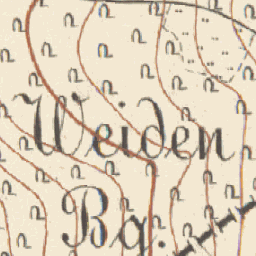 Weiden
Bg.